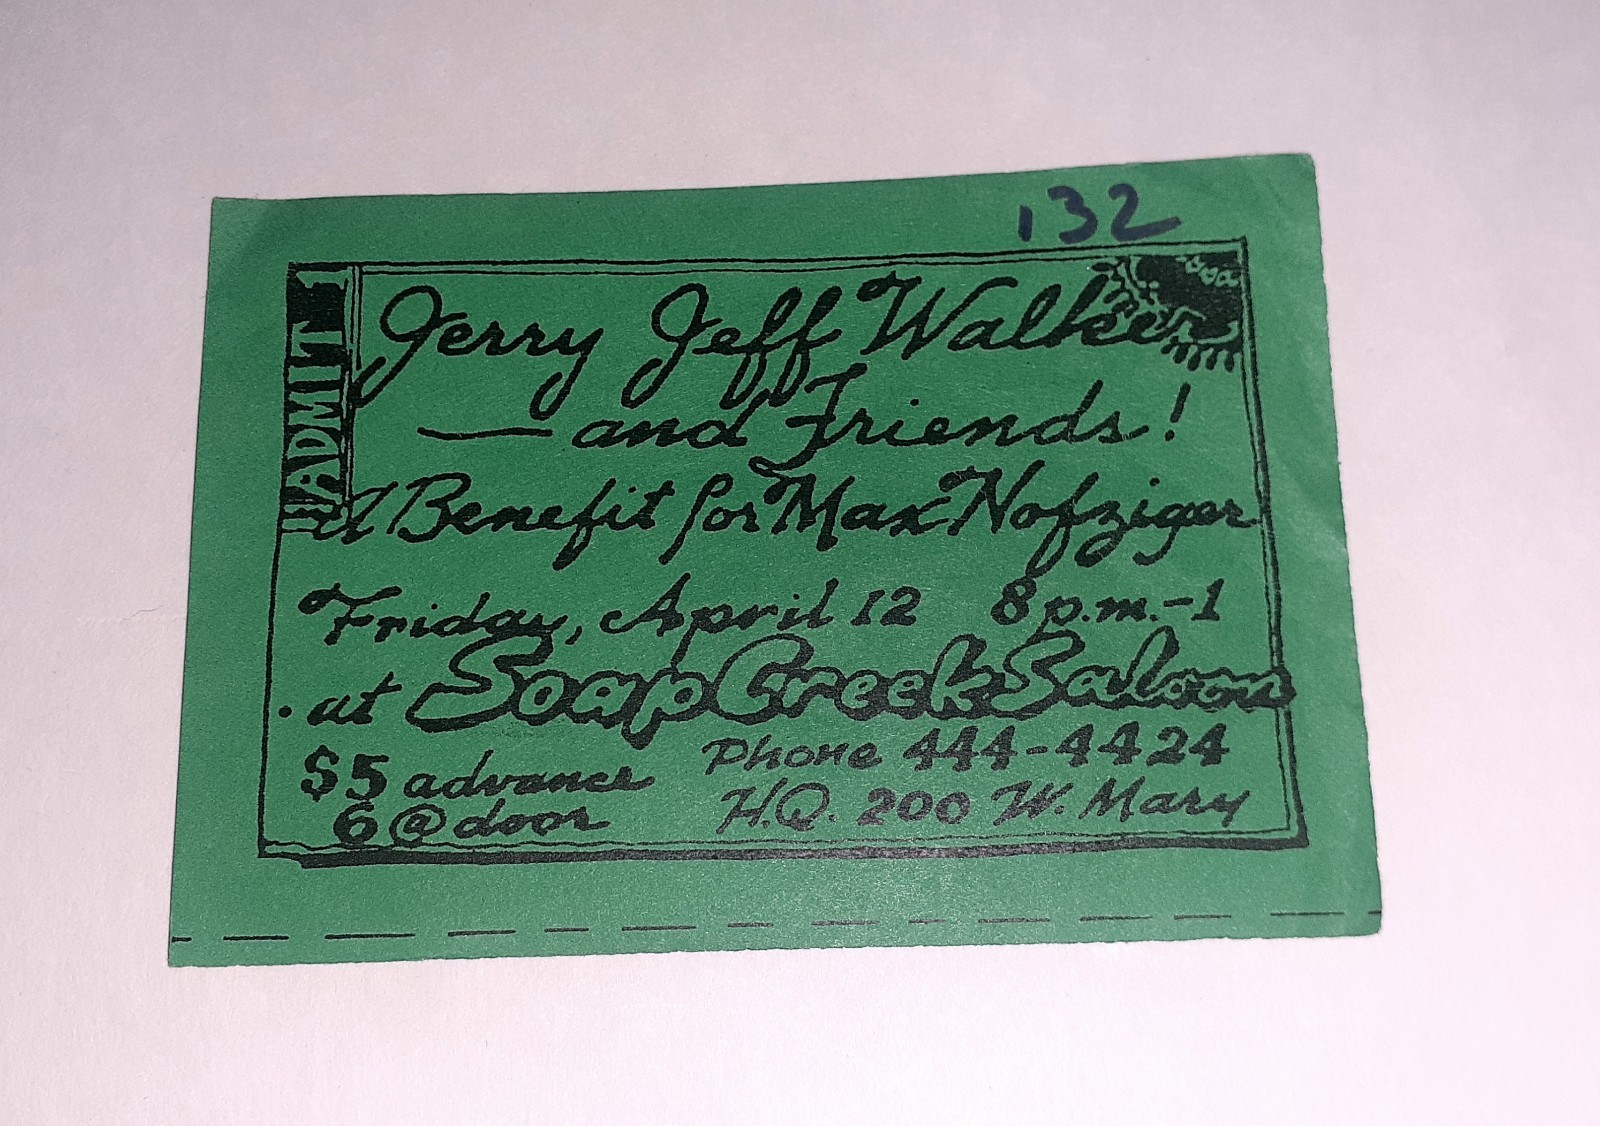 132
ADMIT
Jerry Jeff Walker
— and Friends!
A Benefit for Max Nofziger
Friday, April 12 8 p.m.-1
. at Soap Creek Saloon
$5 advance Phone 444-4424
6 @ door H.Q. 200 W. Mary